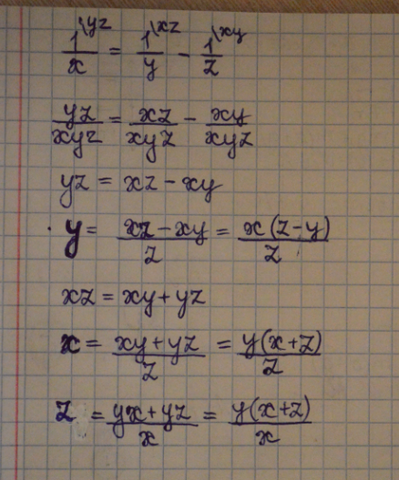 1\yz/x = 1\xz/y - 1\xy/z
yz/xyz = xz/xyz - xy/xyz
yz = xz - xy
y = (xz - xy)/z = x(z-y)/z
xz = xy + yz
x = (xy + yz)/z = y(x+z)/z
z = (yx + yz)/x = y(x+z)/x